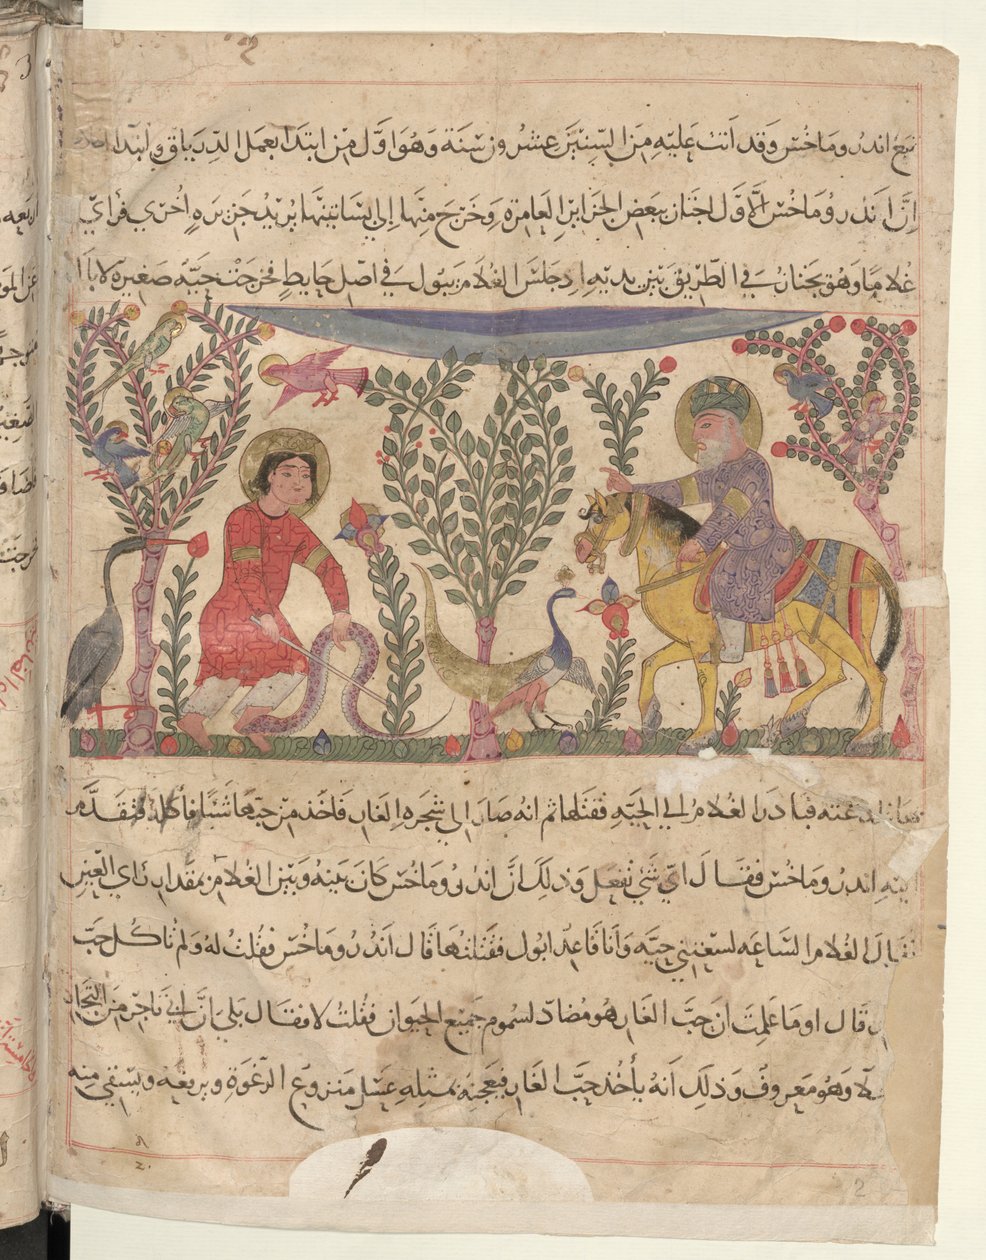 اندروماخس وقد اتت عليه من السنين عشرون سنة وهو اول من ابتدا بعمل الدرياق وابتدا
ان اندروماخس الاول اجتاز ببعض الجزاير العامرة وخرج منها الى بساتينها يريد جزيره اخرى فراى
غلاما وهو يجتاز في الطريق بين يديه اذ جلس الغلام يبول في اصل حايط فخرجت حيه صغيره
لدغته فبادر الغلام الى الحيه فقتلها ثم انه صار الى شجره الغار فاخذ من حبها شيئا فاكله فتقدم
اليه اندروماخس فقال اي شي تفعل وذلك ان اندروماخس كان بينه وبين الغلام بمقدار راي العين
فقال الغلام الساعه لسعتني حيه وانا قاعد ابول فقتلتها قال اندروماخس فقلت له ولم تاكل حب
قال او ما علمت ان حب الغار هو مضاد لسموم جميع الحيوان فقلت لا فقال بلى ان ابي تاجر من التجار
وهو معروف وذلك انه ياخذ حب الغار فيعجنه بمثله عسل منزوع الرغوة ويرفعه ويسقي منه
2